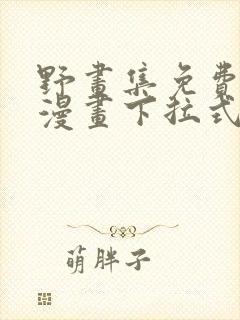 野畫集免費
漫畫下拉式
萌胖子